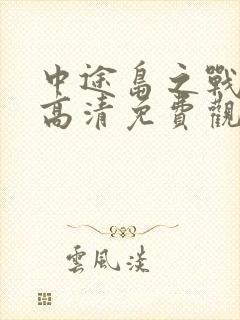 中途島之戰
高清免費觀
雲風淡